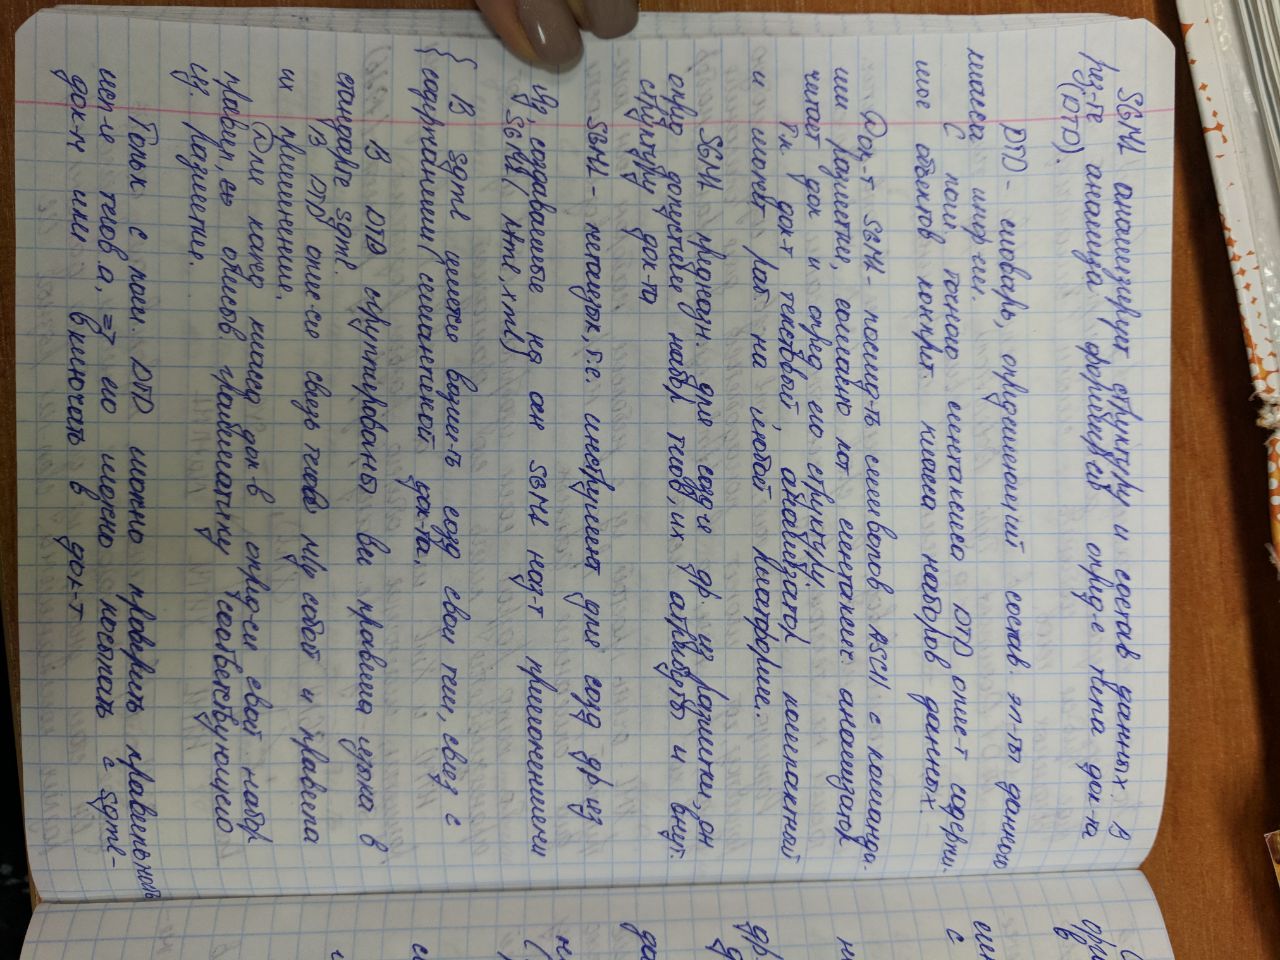 SGML анализирует структуру и состав данных. В
рез-те анализа формируется опред-е типа док-та
(DTD).
DTD - словарь, определяющий состав эл-тов данного
класса инф-ии.
С пом точного синтаксиса DTD опис-т содержи-
мое объектов конкрет. класса наборов данных.
SGML - послед-ть символов ASCII с команда-
ми разметки, согласно кот синтаксич. анализатор
читает док и опред его структуру.
Т.к. док-т текстовый, анализатор компактный
и может раб. на любой платформе.
SGML предназн. для созд-я др. яз разметки, он
опред допустим набор тегов, их атрибуты и внут.
структуру док-та
SGML - метаязык, т.е. инструмент для созд др яз
Из создаваемые на он SGML над-т приложениями
SGML (html, xml)
{ В sgml имеется возм-ть созд свои теги, связ с
содержанием/семантикой док-та.
В DTD сгруппированы все правила языка в
стандарте sgml.
В DTD опис-ся связь тегов м/у собой и правила
их применения,
Для кажд класса док-в опред-ся свой набор
правил, грамматику соответствующего
яз. разметки.
Только с пом. DTD можно проверить правильность
исп-е тегов а, ⇒ его нужно посылать с sgml-
док-м или включать в док-т